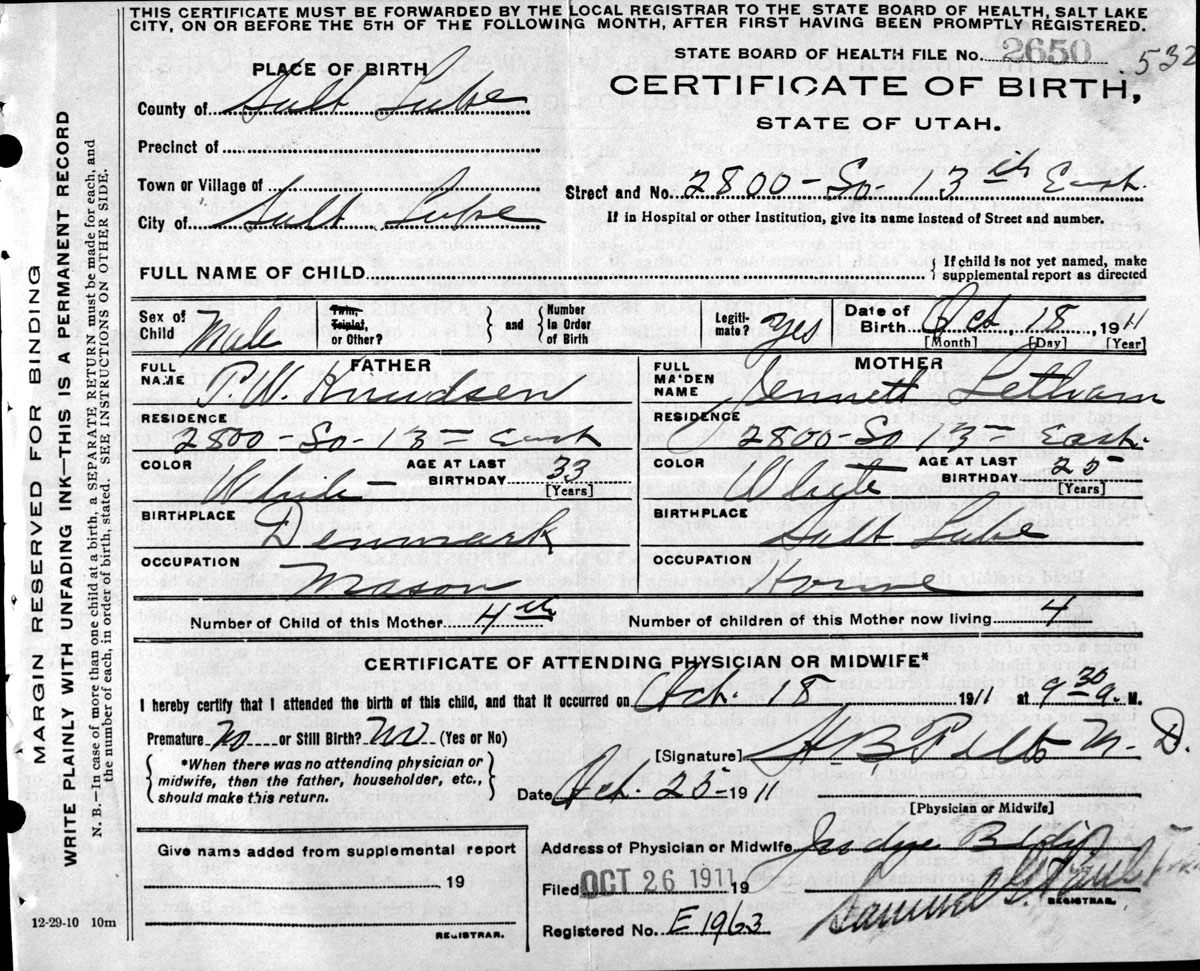 THIS CERTIFICATE MUST BE FORWARDED BY THE LOCAL REGISTRAR TO THE STATE BOARD OF HEALTH, SALT LAKE
CITY, ON OR BEFORE THE 5TH OF THE FOLLOWING MONTH, AFTER FIRST HAVING BEEN PROMPTLY REGISTERED.
STATE BOARD OF HEALTH FILE No. 2650 532
PLACE OF BIRTH
CERTIFICATE OF BIRTH,
STATE OF UTAH.
County of Salt Lake
Precinct of
Town or Village of
Street and No. 2800 - So - 13th East.
City of Salt Lake
If in Hospital or other Institution, give its name instead of Street and number.
FULL NAME OF CHILD
If child is not yet named, make
supplemental report as directed
Sex of Child Male
Twin, Triplet, or Other?
and
Number in Order of Birth
Legiti-mate? Yes
Date of Birth Oct. 18, 1911
[Month] [Day] [Year]
FATHER
MOTHER
FULL NAME P.W. Knudsen
FULL MAIDEN NAME Jennett
RESIDENCE
2800 - So - 13 - East
RESIDENCE
2800 - So 13 - East.
COLOR White
AGE AT LAST BIRTHDAY 33
[Years]
COLOR White
AGE AT LAST BIRTHDAY 25
[Years]
BIRTHPLACE Denmark
BIRTHPLACE Salt Lake
OCCUPATION Mason
OCCUPATION
Number of Child of this Mother 4th
Number of children of this Mother now living 4
CERTIFICATE OF ATTENDING PHYSICIAN OR MIDWIFE*
I hereby certify that I attended the birth of this child, and that it occurred on Oct. 18 1911 at 9 30 a. M.
Premature No or Still Birth? No (Yes or No)
*When there was no attending physician or
midwife, then the father, householder, etc.,
should make this return.
[Signature] M. D.
Date Oct. 25 - 1911
[Physician or Midwife]
Give name added from supplemental report
19
REGISTRAR.
Address of Physician or Midwife Judge Bldg
Filed OCT 26 1911 19
REGISTRAR.
Registered No. E1963
12-29-10 10m
MARGIN RESERVED FOR BINDING
WRITE PLAINLY WITH UNFADING INK—THIS IS A PERMANENT RECORD
N. B.—In case of more than one child at a birth, a SEPARATE RETURN must be made for each, and
the number of each, in order of birth, stated. SEE INSTRUCTIONS ON OTHER SIDE.